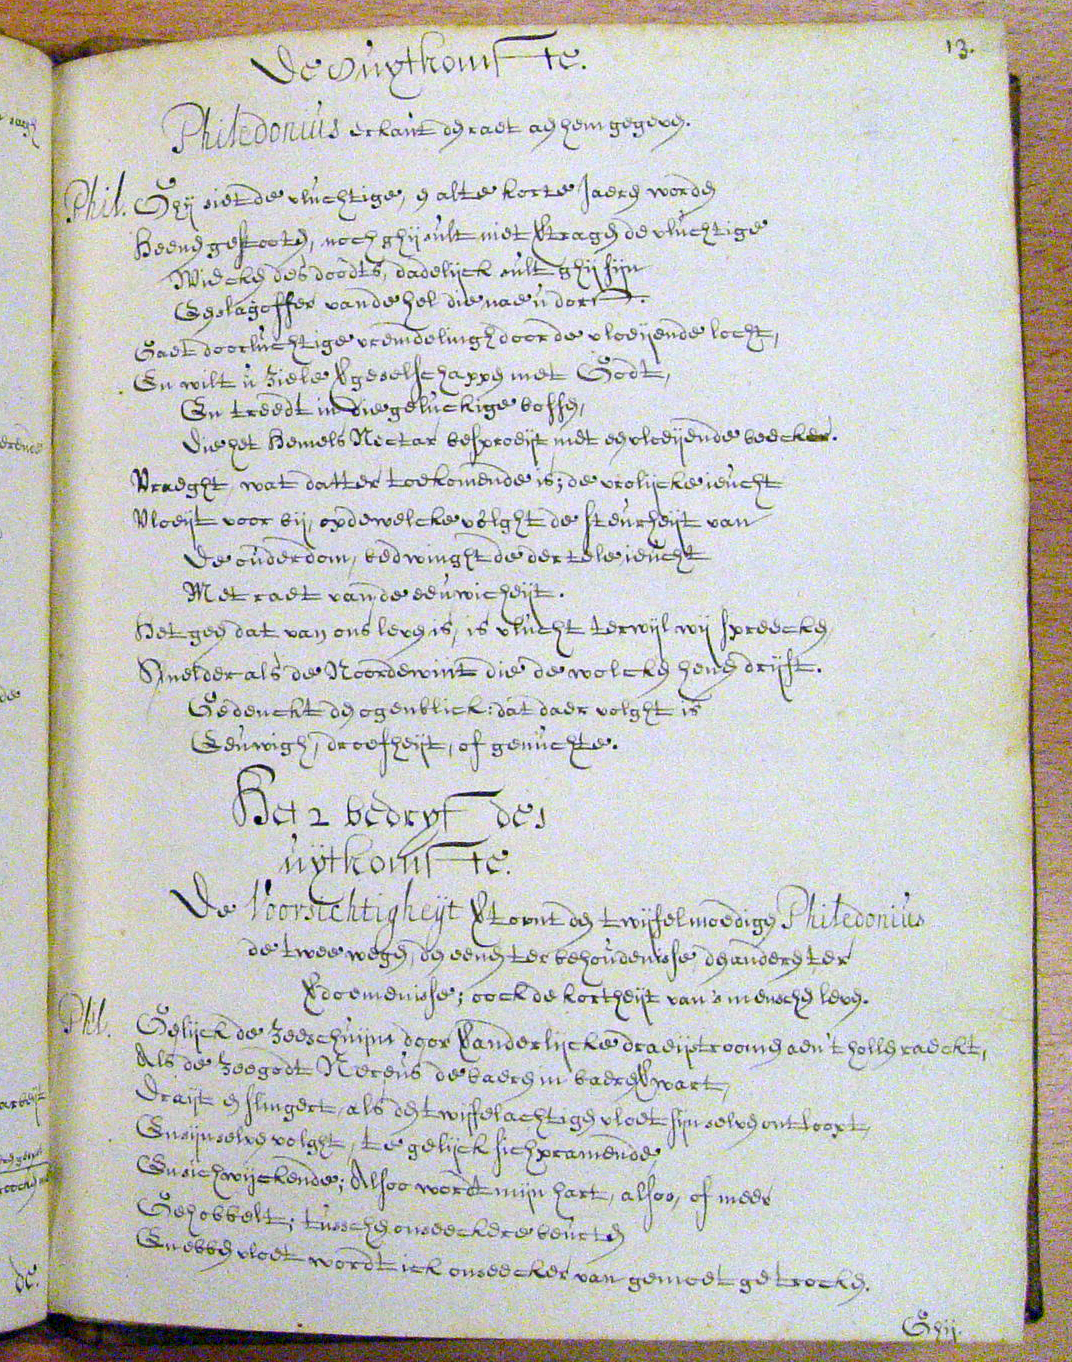 13.
De Uÿtkomste.
Philedonius erkaut den raet aen hem gegeven.
Phil. Ghij siet de vluchtige, en alte korte Jaeren worden
Heenen gestooten, noch ghij sult niet vertragen de vluchtige
Wiecken des doodts, dadelijck sult ghij sijn
Een slagoffer van de hel die nae u dorst.
Gaet doorluchtige vremdelingh door de vloeijende locht,
En wilt u ziele vergeselschappen met Godt,
En treedt in die geluckige bossen,
Die het Hemels Nectar besproeijt met een vloeijende beecker.
Vraeght, wat datter toekomende is; de vrolijcke ieucht
Vloeijt voor bij, op de welcke volght de steurheijt van
De ouderdom, bedwinght de dertele ieucht
Met raet van de eeuwicheijt.
Het geen dat van ons leven is, is vlucht terwijl wij spreecken
Snelder als de Noordewint die de wolcken henen drijft.
Gedenckt den ogenblick: dat daer volght is
Eeuwigh, droefheijt, of genuchte.
Het 2 bedryf des
uÿtkomste.
De Voorsichtigheijt vertoont den twijfelmoedigen Philedonius
de twee wegen, den eenen ter behoudenisse, den anderen ter
verdoemenisse; oock de kortheijt van 's menschen leven.
Phil. Gelijck de Zeeschuijm door veranderlijcke draeijstroomen aen 't hollen raeckt,
Als de Zeegodt Nereus de baeren in baeren verwart,
Draijt en slingert, als den twijfelachtigen vloet sijn selven ontloopt,
En sijn selven volght, te gelijck sich pramende,
En sich wijckende; Alsoo wordt mijn hart, alsoo, of meer
Gehobbelt; tusschen onseeckere beurten
En ebben vloet wordt ick onseecker van gemoet getrocken.
Ghij.